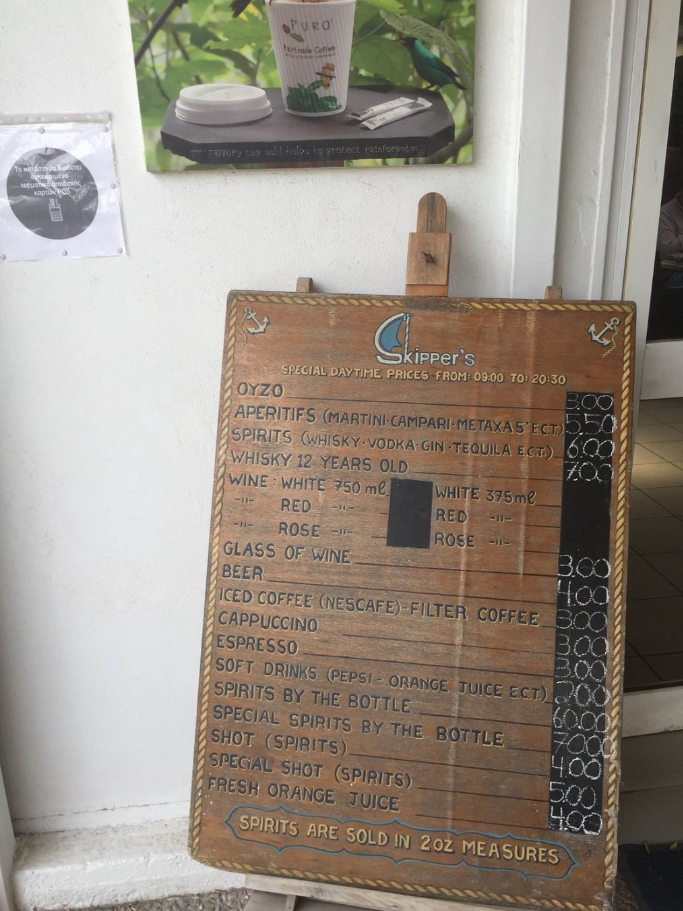 PURO
Fairtrade Coffee
every cup sold helps to protect rainforests
Το κατάστημα διαθέτει
εγκεκριμένο
τερματικό αποδοχής
καρτών POS
Skipper's
SPECIAL DAYTIME PRICES FROM: 09:00 TO: 20:30
OYZO 3.00
APERITIFS (MARTINI·CAMPARI·METAXA 5* E.C.T.) 5.50
SPIRITS (WHISKY·VODKA·GIN·TEQUILA E.C.T.) 6.00
WHISKY 12 YEARS OLD 7.00
WINE: WHITE 750 ml WHITE 375ml
-"- RED -"- RED -"-
-"- ROSE -"- ROSE -"-
GLASS OF WINE 3.00
BEER 4.00
ICED COFFEE (NESCAFE)-FILTER COFFEE 3.00
CAPPUCCINO 3.00
ESPRESSO 3.00
SOFT DRINKS (PEPSI - ORANGE JUICE E.C.T.)
SPIRITS BY THE BOTTLE 60.00
SPECIAL SPIRITS BY THE BOTTLE 70.00
SHOT (SPIRITS) 4.00
SPECIAL SHOT (SPIRITS) 5.00
FRESH ORANGE JUICE 4.00
SPIRITS ARE SOLD IN 2oz MEASURES